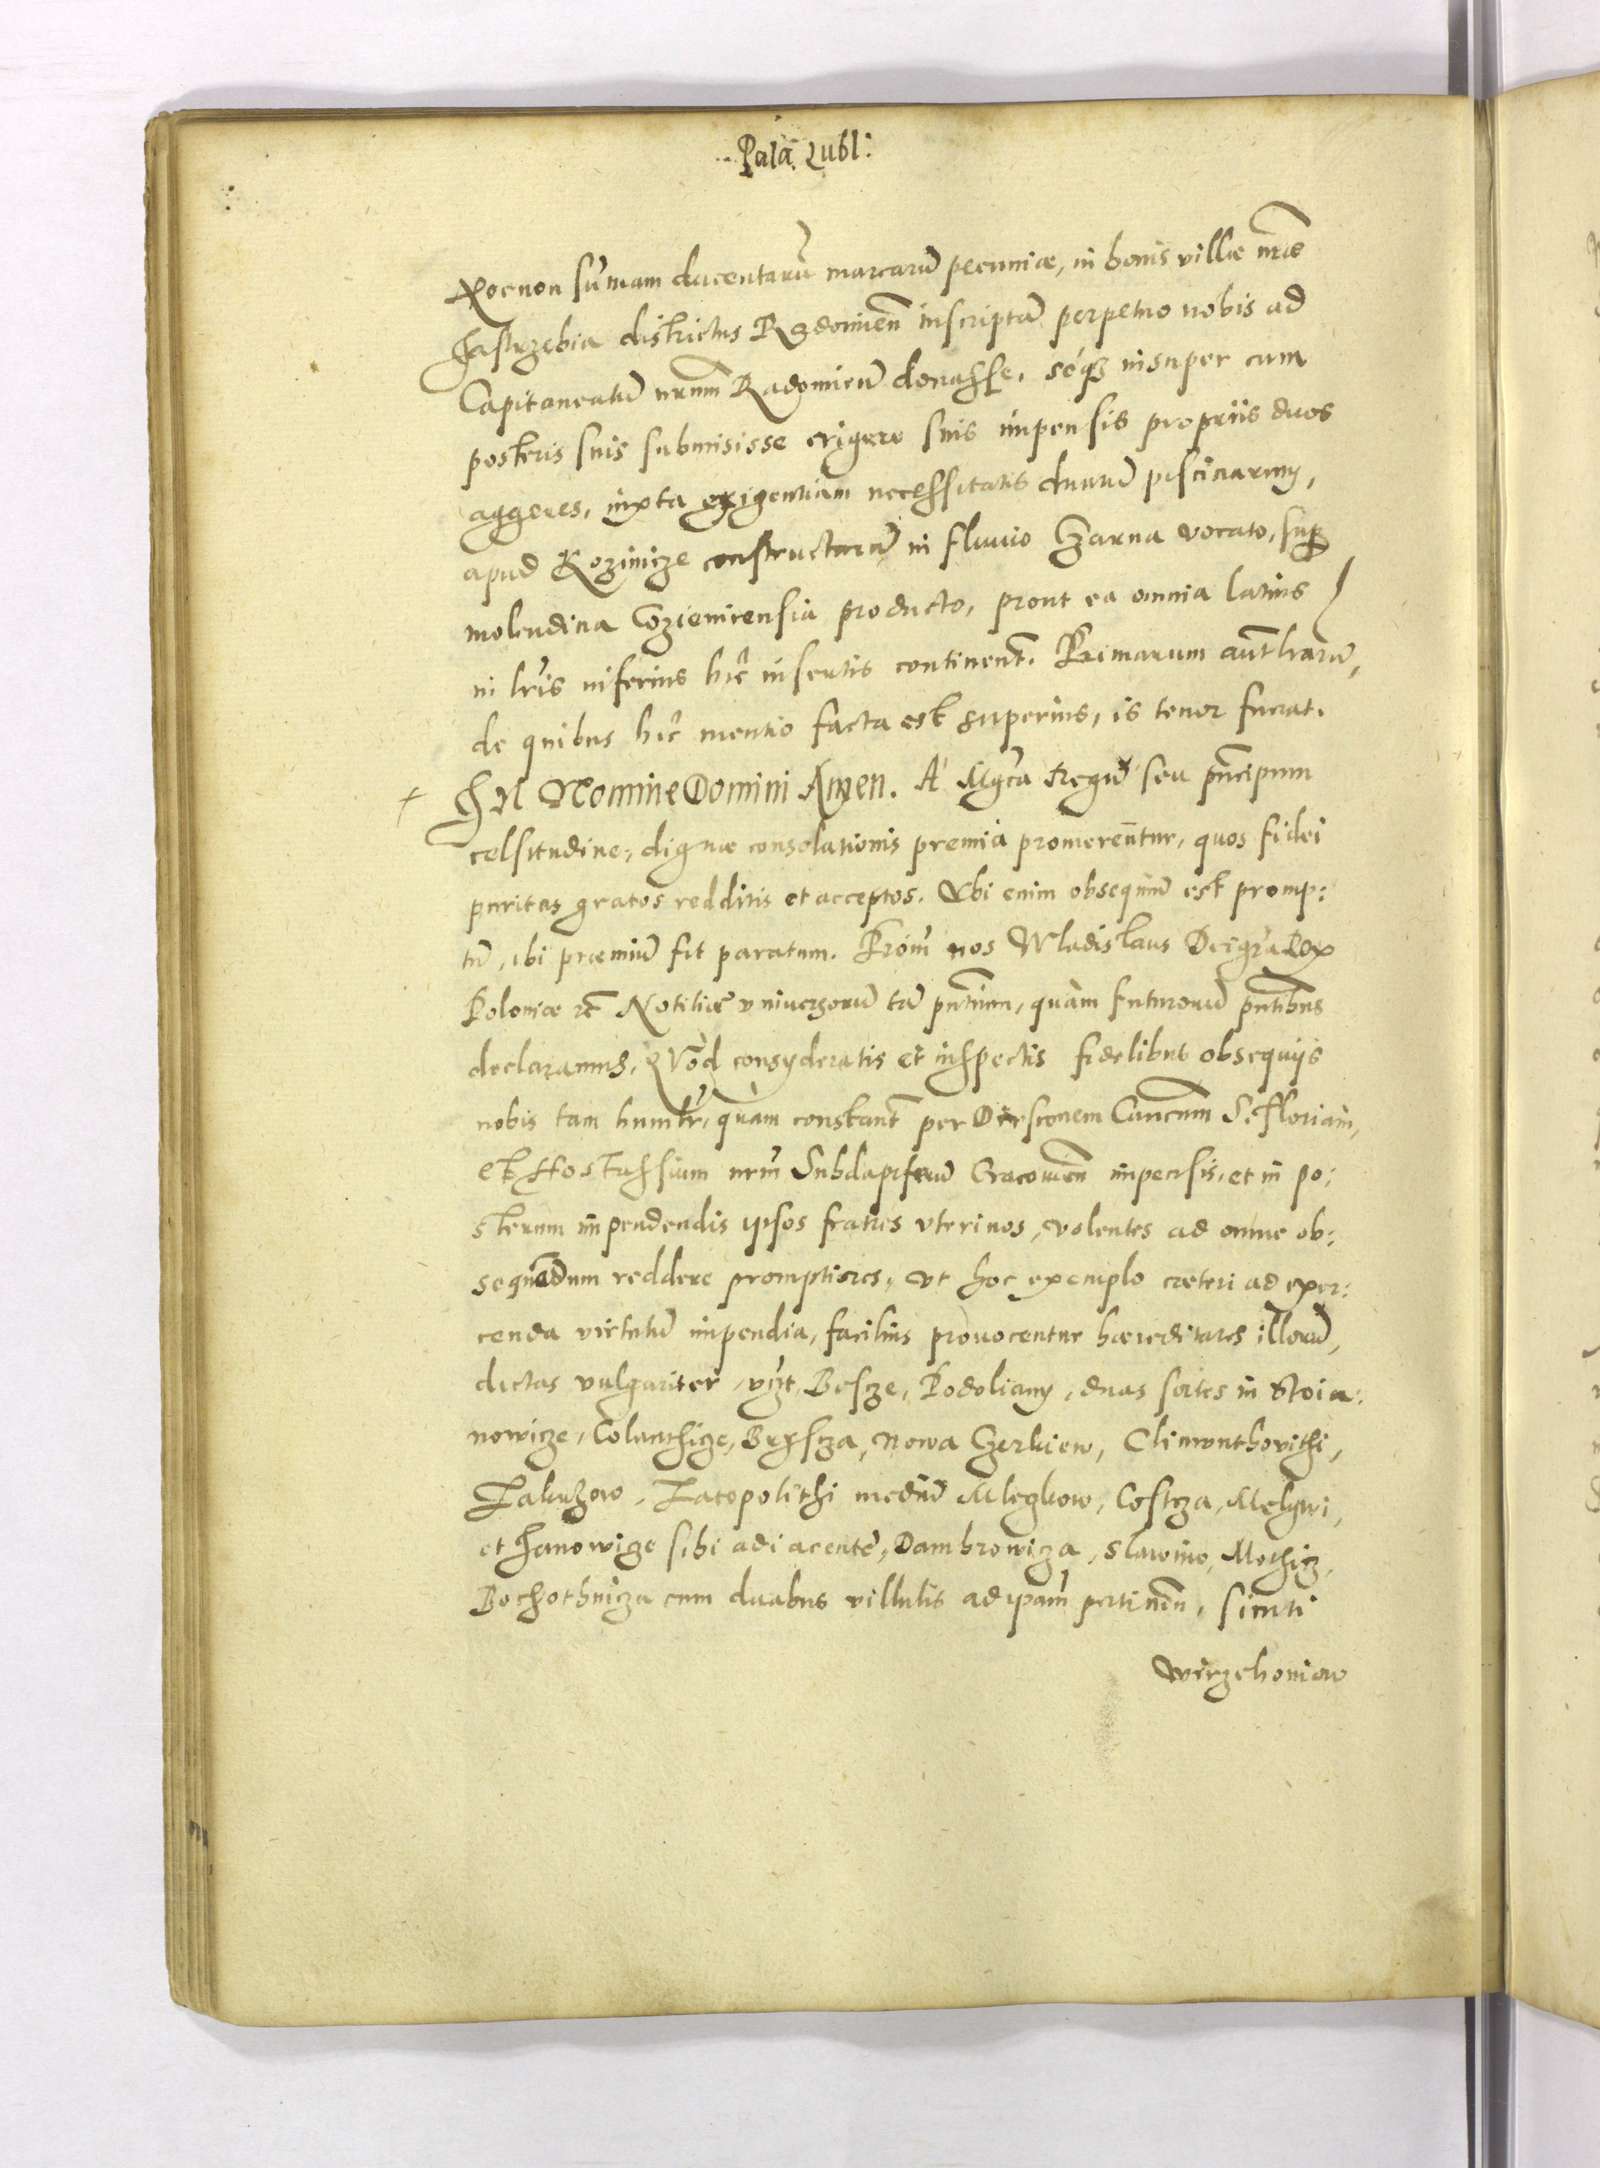 Pala Lubl:
Necnon sumam ducentarū marcarū pecuniæ, in bonis villæ nræ
Jastrzebia districtus Radomien inscriptā perpetuo nobis ad
Capitaneatū nrum Radomien donasse, séqz insuper cum
posteris suis submisisse erigere suis impensis propriis duos
aggeres, iuxta exigentiam necessitatis duarū piscinarum,
apud Kozinicze constructarū in fluuio Czarna vocato, sup
molendina Cozienicensia producto, prout ea omnia latius
in lris inferius hic insertis continent. Primarum aut lrarū,
de quibus hic mentio facta est superius, is tenor fuerat.
In Nomine Domini Amen. A' Mgca Regū seu pncipum
celsitudine, dignæ consolationis premia promerentur, quos fidei
puritas gratos redditis et acceptos. Vbi enim obsequiū est promp:
tū, ibi præmiū fit paratum. Proin nos Wladislaus Dei gra Rex
Poloniæ etc Notitiæ vniuersorū tā pntium, quàm futurorū pntibus
declaramus, Quod consyderatis et inspectis fidelibus obsequijs
nobis tam humlr, quàm constant per Dirsconem Cancnum S. Florian,
et Ostassium nrm Subdapiferū Cracouien impensis, et in po:
sterum impendendis ipsos fratres vterinos, volentes ad omne ob:
sequendum reddere promptiores, vt hoc exemplo cæteri ad exer:
cenda virtutū impendia, facilius prouocentur hæreditates illorū,
dictas vulgariter, vzt, Besze, Podoliany, duas sortes in Stoia:
nowicze, Colaczicze, Bexstza, Nowa Czerkiew, Climonthovithi,
Jakuszow, Latopolithi mediū Mlegkow, Costza, Melgwi,
et Janowicze sibi adiacente, Dambrowicza, Slawino, Mothicz,
Bochothnicza cum duabus villulis ad ipam pertinen, sicuti
Wirzchoniow